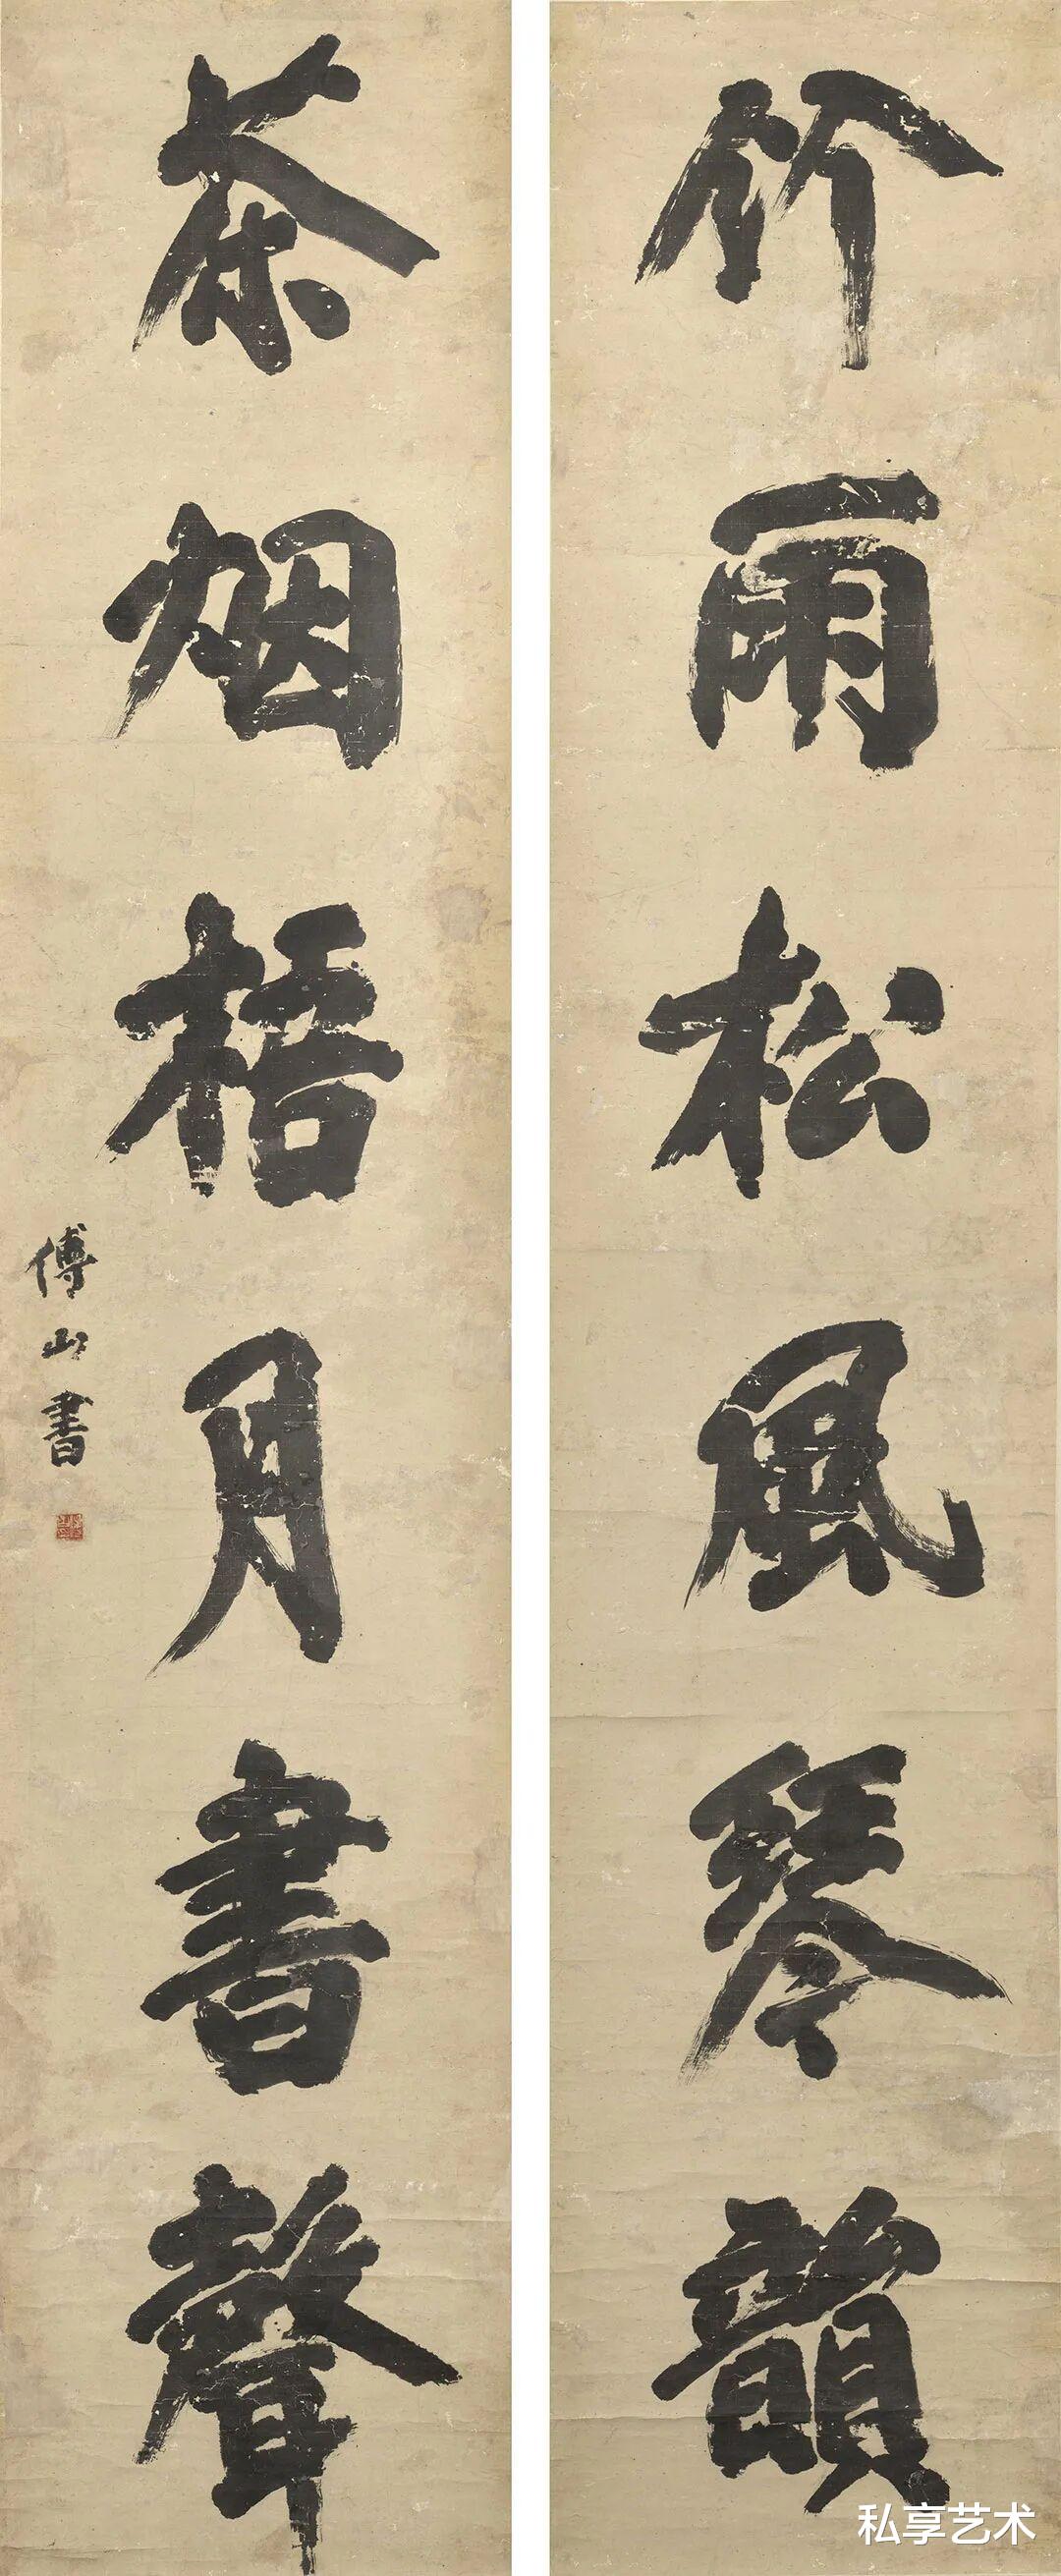 竹雨松風琴韻
茶烟梧月書聲
傅山書
私享艺术